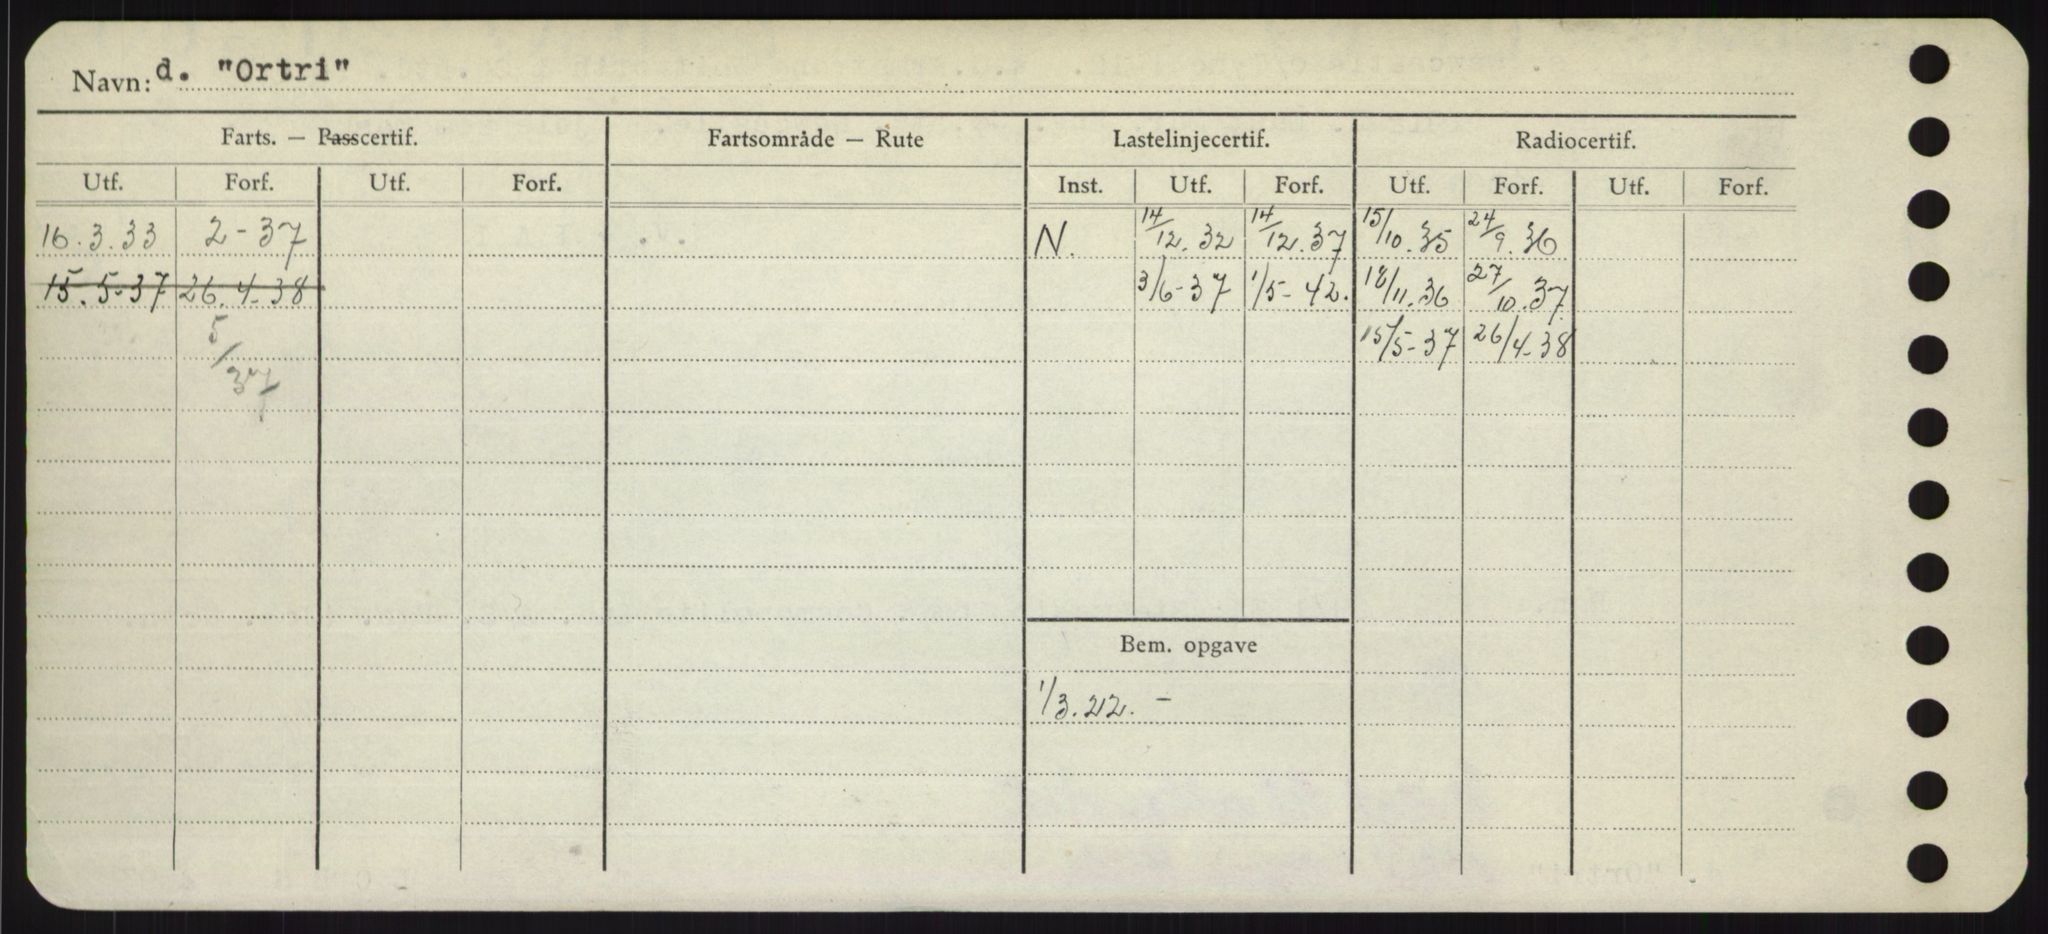 Navn: d. "Ortri"
Farts. — Passcertif. Fartsområde — Rute Lastelinjecertif. Radiocertif.
Utf. Forf. Utf. Forf. Inst. Utf. Forf. Utf. Forf. Utf. Forf.
16.3.33 2-37 N. 14/12.32 14/12.37 15/10.35 24/9.36
15.5-37 26.4-38 3/6-37 1/5-42. 18/11.36 27/10.37
5/37 15/5-37 26/4-38
Bem. opgave
1/3.22. -